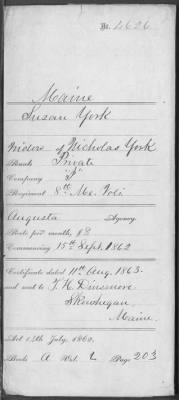 No. 4626
Maine
Susan York
Widow of Nicholas York
Rank Private
Company "I"
Regiment 8th Me. Vols
Augusta Agency.
Rate per month, $8
Commencing 15th Sept. 1862
Certificate dated 11th Aug. 1863.
and sent to T. H. Dinsmore
Skowhegan
Maine.
Act 14th July, 1862.
Book A Vol. 2 Page 203